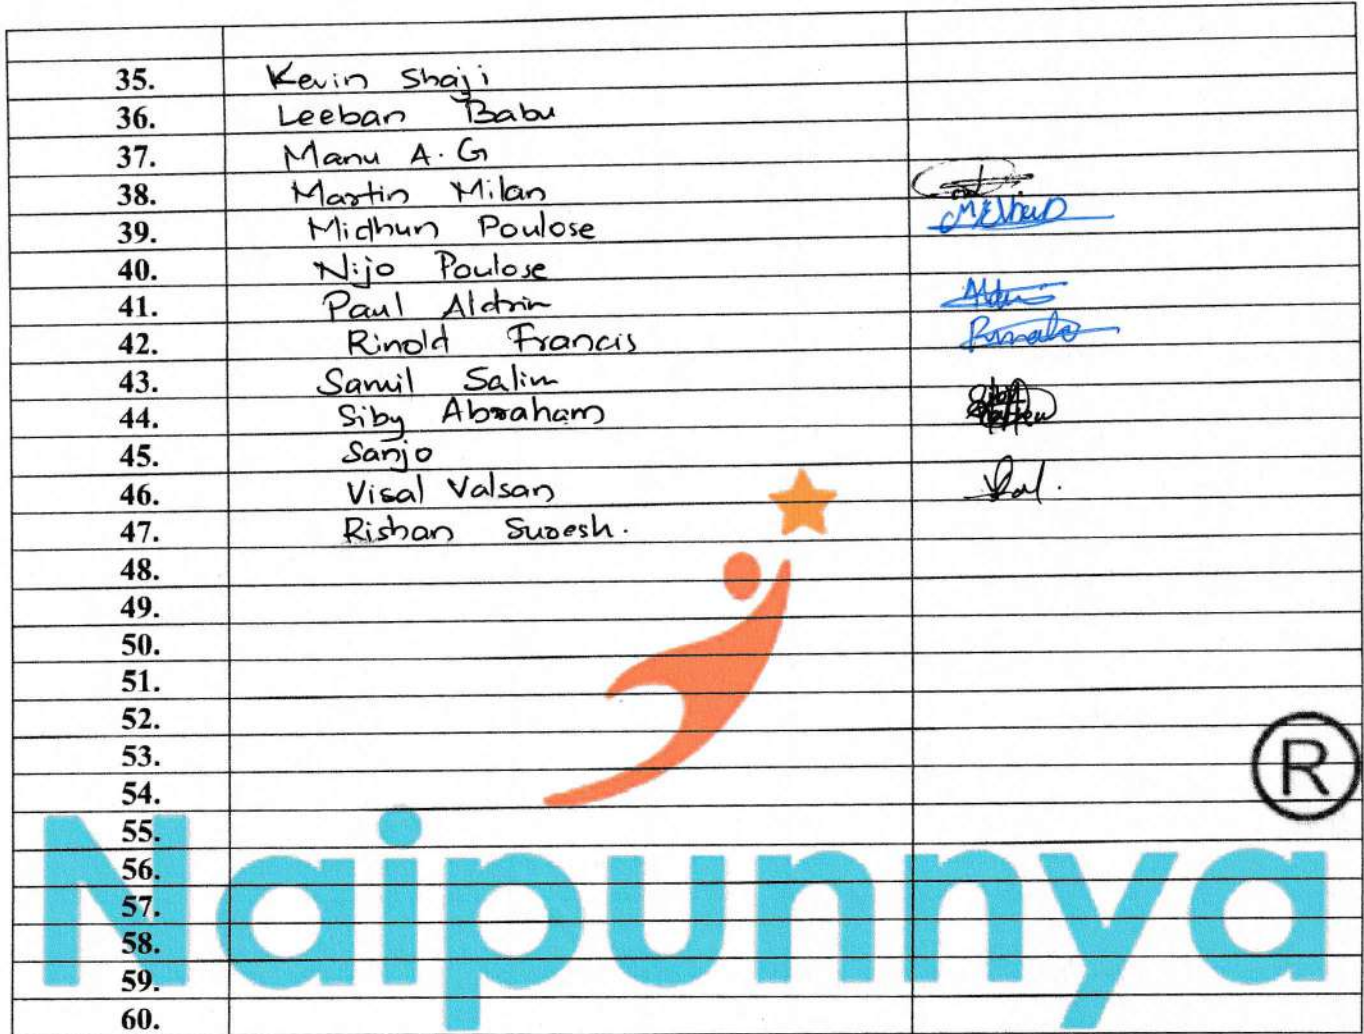 35. Kevin Shaji
36. Leeban Babu
37. Manu A. G
38. Martin Milan
39. Midhun Poulose Midhun
40. Nijo Poulose
41. Paul Aldrin
42. Rinold Francis
43. Samil Salim
44. Siby Abraham
45. Sanjo
46. Visal Valsan
47. Rishan Suresh.
48.
49.
50.
51.
52.
53.
54.
®
55.
56.
57.
58.
59.
60.
Naipunnya